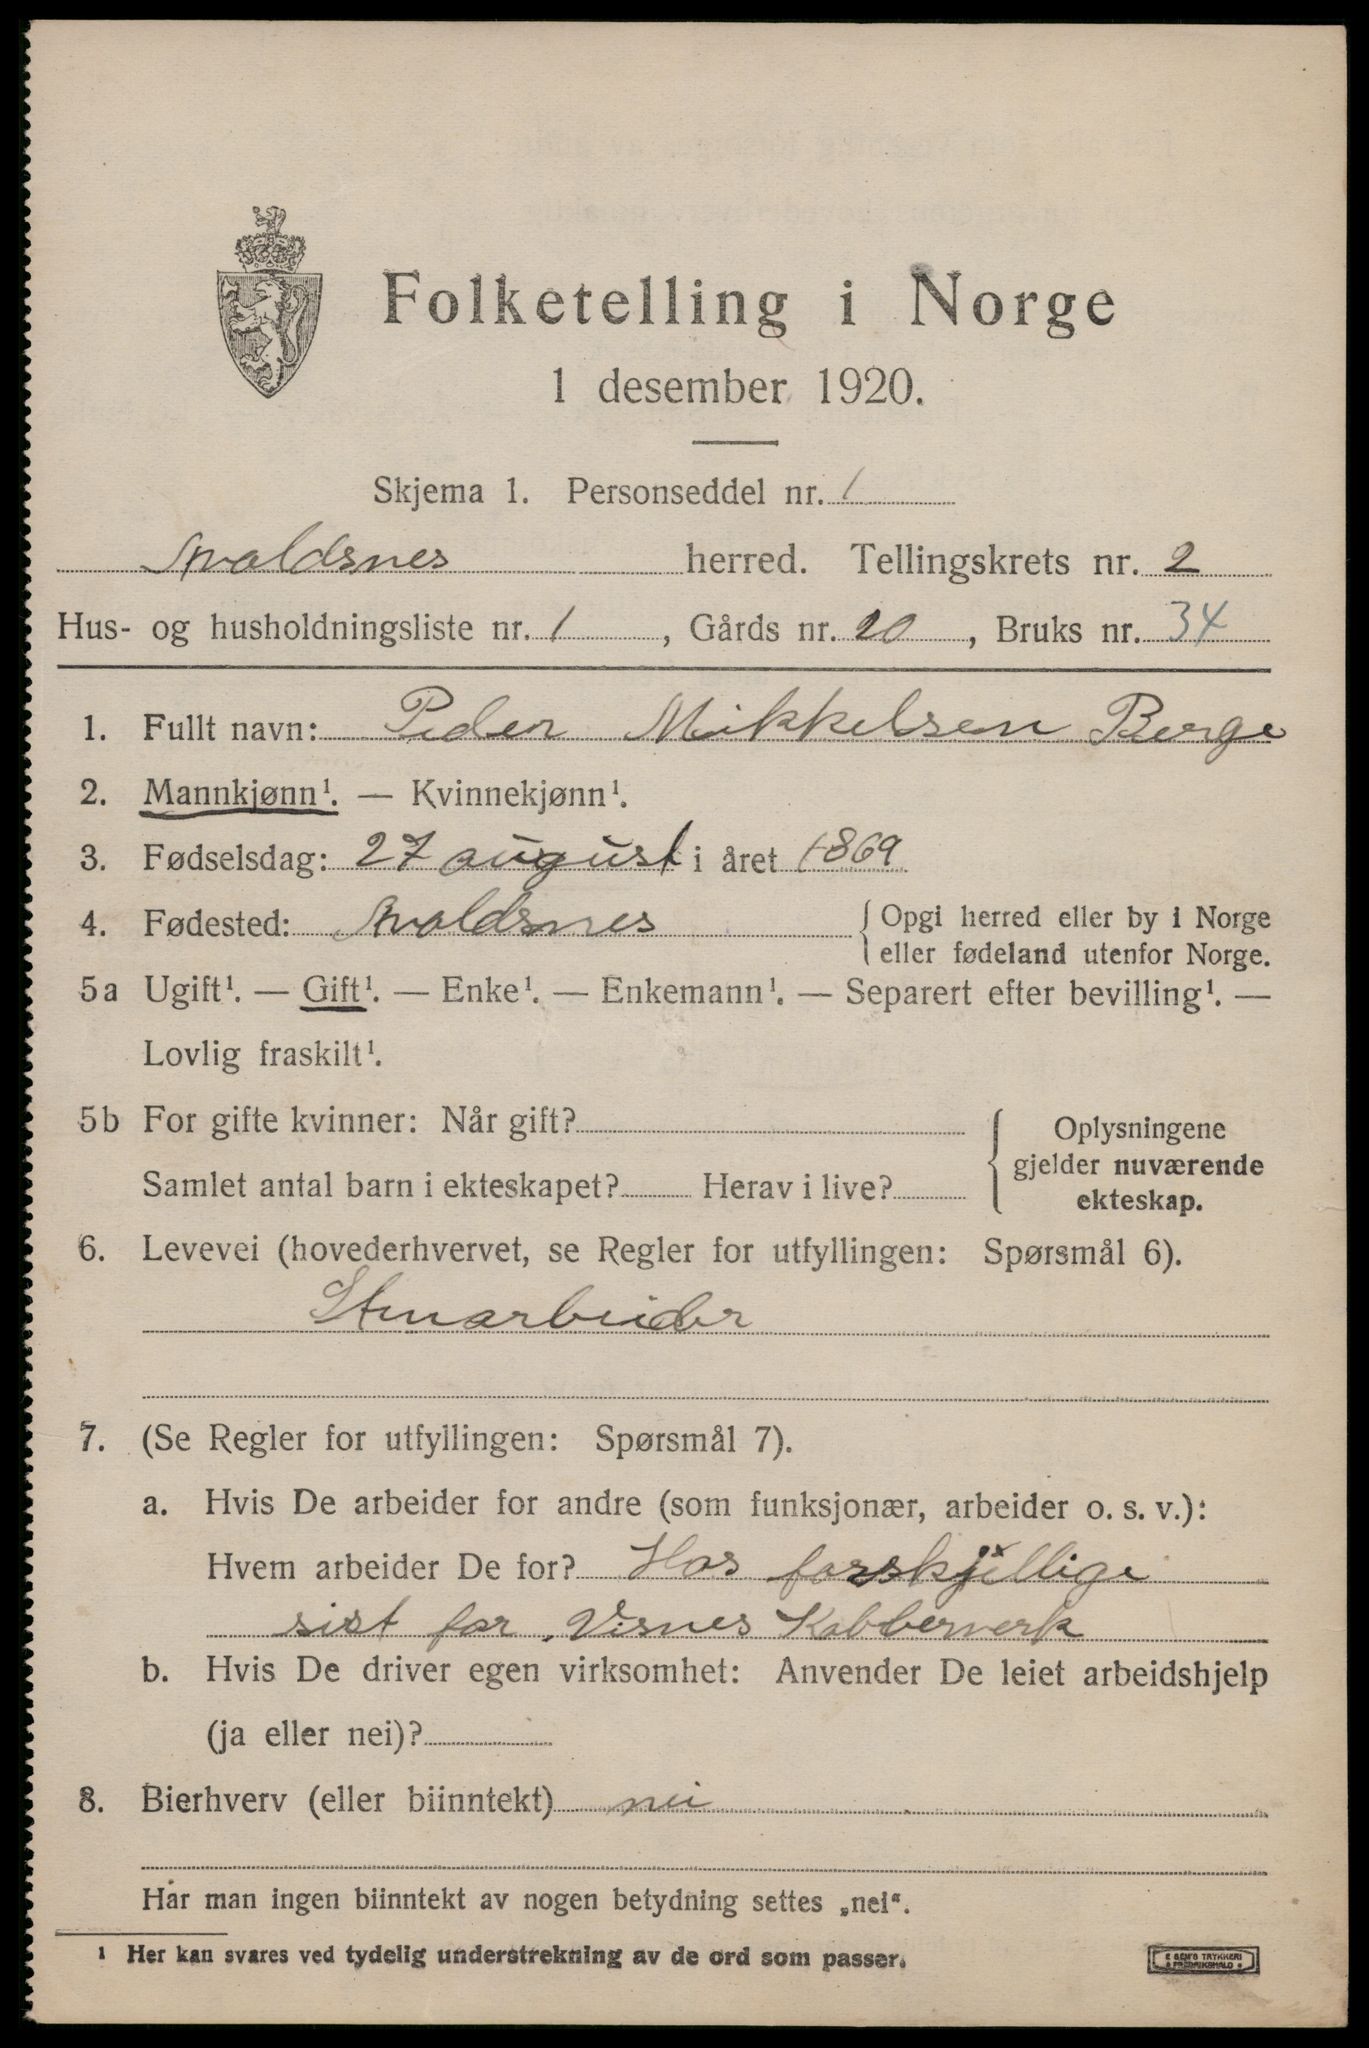 Folketelling i Norge
1 desember 1920.
Skjema 1. Personseddel nr. 1
Avaldsnes herred. Tellingskrets nr. 2
Hus- og husholdningsliste nr. 1, Gårds nr. 20, Bruks nr. 34
1. Fullt navn: Peder Mikkelsen Berge
2. Mannkjønn¹. — Kvinnekjønn¹.
3. Fødselsdag: 27 august i året 1869
4. Fødested: Avaldsnes {Opgi herred eller by i Norge
eller fødeland utenfor Norge.
5a Ugift¹. — Gift¹. — Enke¹. — Enkemann¹. — Separert efter bevilling¹. —
Lovlig fraskilt¹.
5b For gifte kvinner: Når gift?
Samlet antal barn i ekteskapet? Herav i live?
Oplysningene
gjelder nuværende
ekteskap.
6. Levevei (hovederhvervet, se Regler for utfyllingen: Spørsmål 6).
Stenarbeider
7. (Se Regler for utfyllingen: Spørsmål 7).
a. Hvis De arbeider for andre (som funksjonær, arbeider o. s. v.):
Hvem arbeider De for? Hos forskjellige
sist for Visnes Kobberverk
b. Hvis De driver egen virksomhet: Anvender De leiet arbeidshjelp
(ja eller nei)?
8. Bierhverv (eller biinntekt) nei
Har man ingen biinntekt av nogen betydning settes „nei“.
1 Her kan svares ved tydelig understrekning av de ord som passer.
E SEM'S TRYKKERI
FREDRIKSHALD